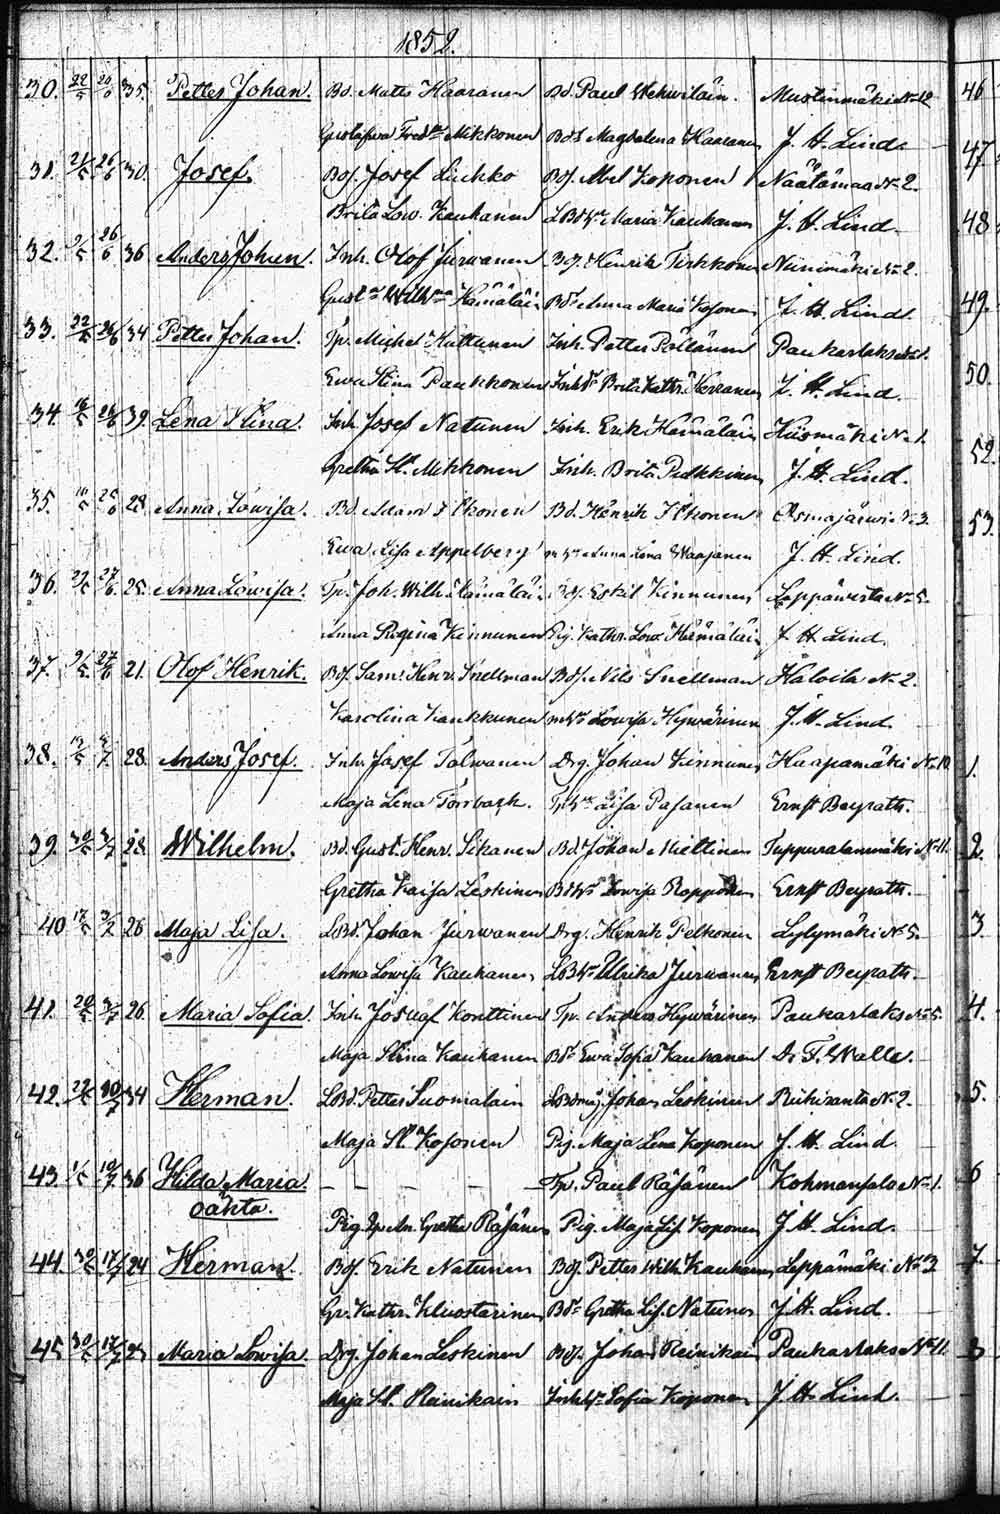 1852.
30. 22/5 20/6 35. Petter Johan. Bd. Matts Haaranen Bd. Paul Wehwiläin. Mustinmäki No 12
Gustafwa Fredr. Mikkonen Bds Magdalena Haaranen J. H. Lind.
31. 26/6 30. Josef. Bdf. Josef Luchko Bdf. Abel Koponen Näätämaa No 2.
Brita Low. Kauhanen LBdhr Maria Kauhanen J. H. Lind.
32. 26/6 36 Anders Johan. Inh. Olof Jurwanen Bdf. Henrik Tirkkonen Niinimäki No 2.
Hämäläin Anna Maria Kosonen J. H. Lind.
33. 22/5 26/6 34 Petter Johan. Tp. Michel Huttunen Inh. Petter Pöllänen Paukarlaks No 1.
Ewa Stina Paukkonen Brita Kathr. J. H. Lind.
34. 39. Lena Stina. Inh. Josef Natunen Inh. Erik Hämäläin Hiismäki No 1.
Gretha St. Mikkonen Inh. Brita J. H. Lind.
35. 28 Anna Lowisa. Bd. Adam Ilkonen Bd. Henrik Ilkonen Osmajärwi No 3.
Ewa Lisa Appelberg Anna Lena Waajanen J. H. Lind.
36. 27/6 25. Anna Lowisa. Tp. Joh. Wilh. Hämäläin Bdf. Eskil Kinnunen Leppäwirta No 5.
Anna Regina Kinnunen Pig. Kathr. Low. Hämäläin J. H. Lind.
37. 9/5 27/6 21. Olof Henrik. Bdf. Saml Henr. Snellman Bdf. Nils Snellman Halola No 2.
Karolina Kaukkunen Lowisa Hywärinen J. H. Lind
38. 28. Anders Josef. Inh. Josef Tolwanen Drg. Johan Kinnunen Haapamäki No 10.
Maja Lena Lisa Pasanen Ernst Beyrath.
39. 30/5 3/7 28. Wilhelm. Bd. Gust. Henr. Sikanen Bd. Johan Miettinen No 11.
Gretha Kaisa Leskinen Lowisa Ropponen Ernst Beyrath.
40 17/5 26 Maja Lisa. LBd. Johan Jurwanen Drg. Henrik Pelkonen Lylymäki No 5.
Anna Lowisa Kauhanen Ulrika Jurwanen Ernst Beyrath.
41. 3/7 26. Maria Sofia. Inh. Josua Konttinen Tp. Anders Hywärinen Paukarlaks No 5.
Maja Stina Kauhanen Bdr Ewa Sofia Kauhanen D. F. Walle.
42. 34 Herman. LBd. Petter Suomalain Johan Leskinen Riihiranta No 2.
Maja St. Kosonen Pig. Maja Lena Koponen J. H. Lind.
43. 10/7 36 Hilda Maria. – – – Tp. Paul Räsänen Kohmansalo No 1.
oäkta.
Pig. Gretha Räsänen Pig. Maja Lis. Koponen J. H. Lind.
44. 30/5 17/7 24 Herman. Bdf. Erik Natunen Bdf. Petter Wilh. Kauhanen Leppämäki No 3
Gr. Kathr. Kluostarinen Bdr Gretha Lis. Natunen J. H. Lind.
45 30/5 17/7 Maria Lowisa. Drg. Johan Leskinen Bdf. Johan Reinikain Paukarlaks No 11.
Maja St. Reinikain Sofia Koponen J. H. Lind.
46
47
48
49.
50.
52.
53.
1.
2.
3
4.
5.
6
7.
8